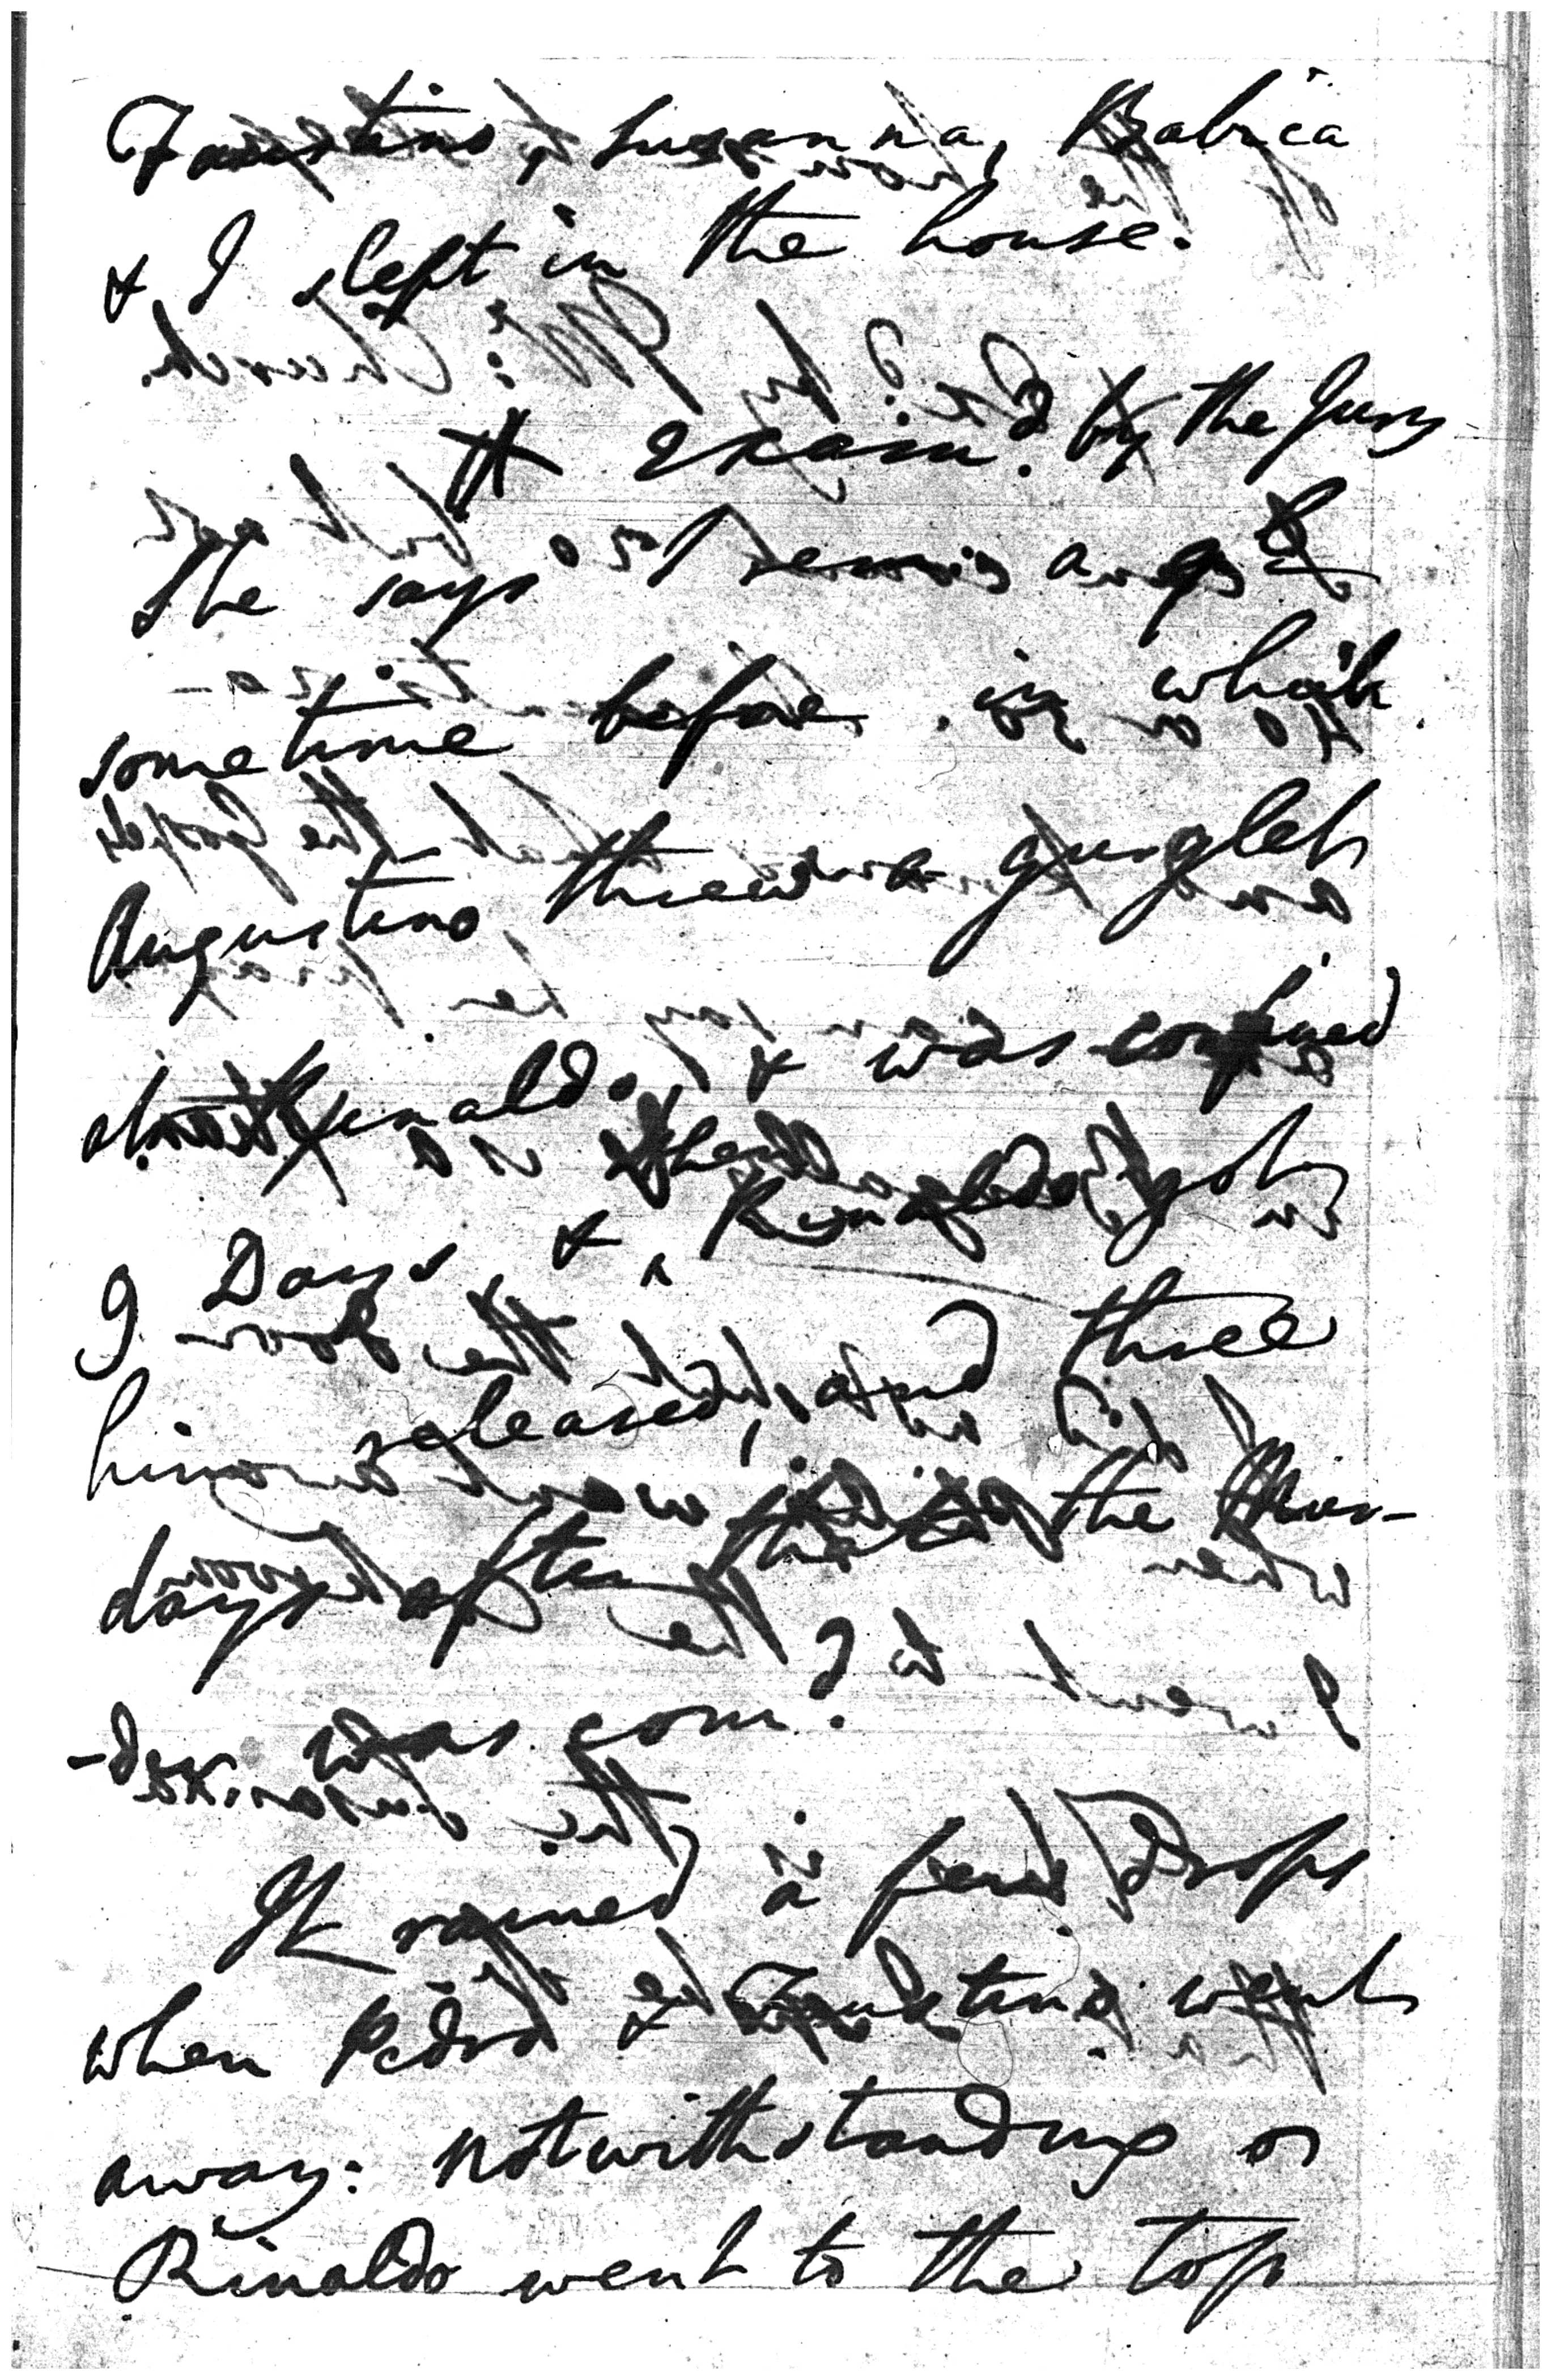 Faustino, Susanna, Babica
& I slept in the house.
X Exam.d by the Jury
She says
sometime before in which
Augustino threw a gurglet
at Rinaldo, & was confined
9 Days, & Rinaldo got
him released, and three
days after the Mur-
-der was com.d
It rained a few Drops
when Pedro & Faustino went
away: notwithstanding
Rinaldo went to the top